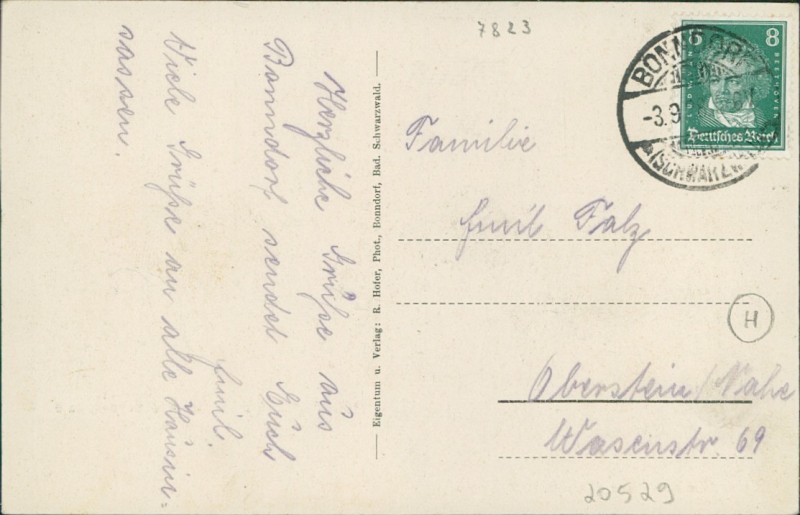 Herzliche Grüße aus
Bonndorf sendet Euch
Emil.
Viele Grüße an alle Hausin=
sassen.
Eigentum u. Verlag: R. Hofer, Phot., Bonndorf, Bad. Schwarzwald.
7823
8 8
LUDWIG VAN BEETHOVEN
Deutsches Reich
BONNDORF
-3.9
(SCHWARZW
Familie
Emil Falz
H
Oberstein/Nahe
Wasenstr. 69
20529